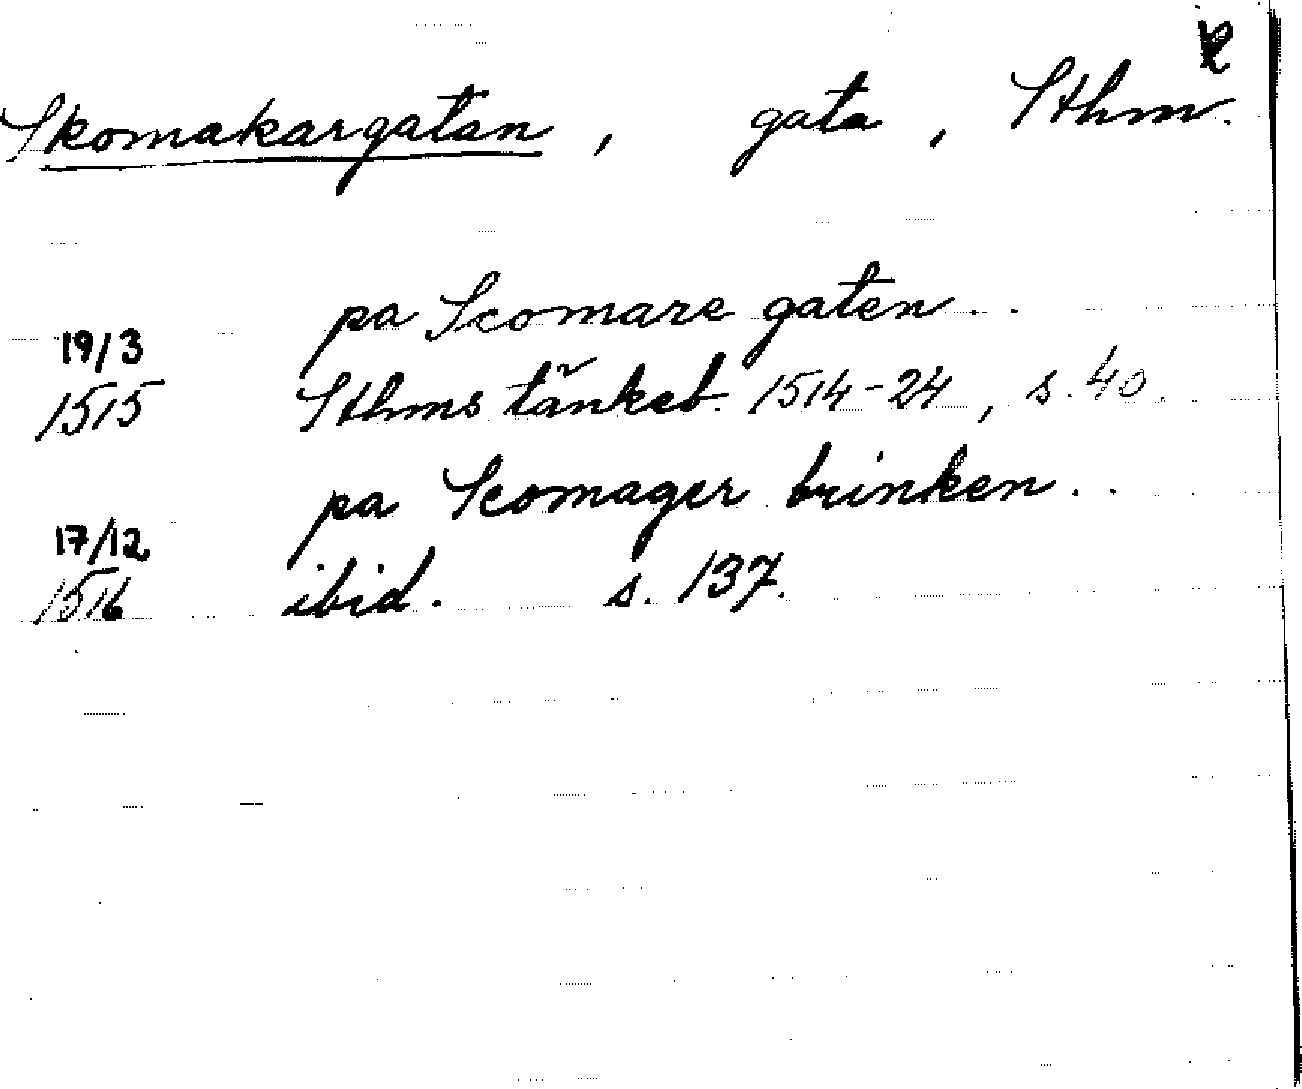 Skomakargatan, gata, Sthm.
pa Scomare gaten..
19/3
1515 Sthms tänkeb. 1514-24, s. 40.
pa Scomager brinken..
17/12
1516 ibid. s. 137.